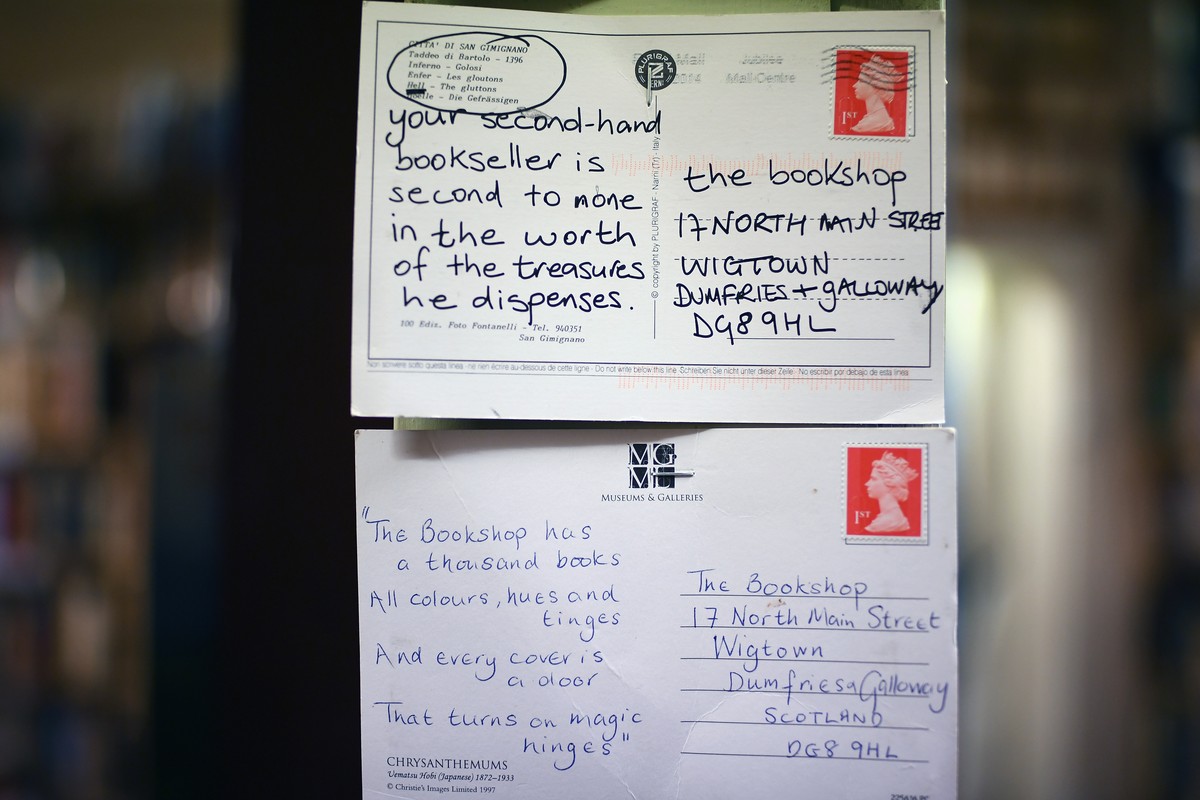 CITTA' DI SAN GIMIGNANO
Taddeo di Bartolo - 1396
Inferno - Golosi
Enfer - Les gloutons
Hell - The gluttons
Hoelle - Die Gefrässigen
your second-hand
bookseller is
second to none
in the worth
of the treasures
he dispenses.
100 Ediz. Foto Fontanelli - Tel. 940351
San Gimignano
PLURIGRAF
© copyright by PLURIGRAF - Narni (Tr) - Italy
Mail
2014
Jubilee
Mail Centre
1ST
the bookshop
17 NORTH MAIN STREET
WIGTOWN
DUMFRIES + GALLOWAY
DG8 9HL
Non scrivere sotto questa linea - ne rien écrire au-dessous de cette ligne - Do not write below this line. Schreiben Sie nicht unter dieser Zeile - No escribir por debajo de esta línea
MUSEUMS & GALLERIES
1ST
"The Bookshop has
a thousand books
All colours, hues and
tinges
And every cover is
a door
That turns on magic
hinges"
CHRYSANTHEMUMS
Uematsu Hobi (Japanese) 1872–1933
© Christie's Images Limited 1997
The Bookshop
17 North Main Street
Wigtown
Dumfries & Galloway
SCOTLAND
DG8 9HL